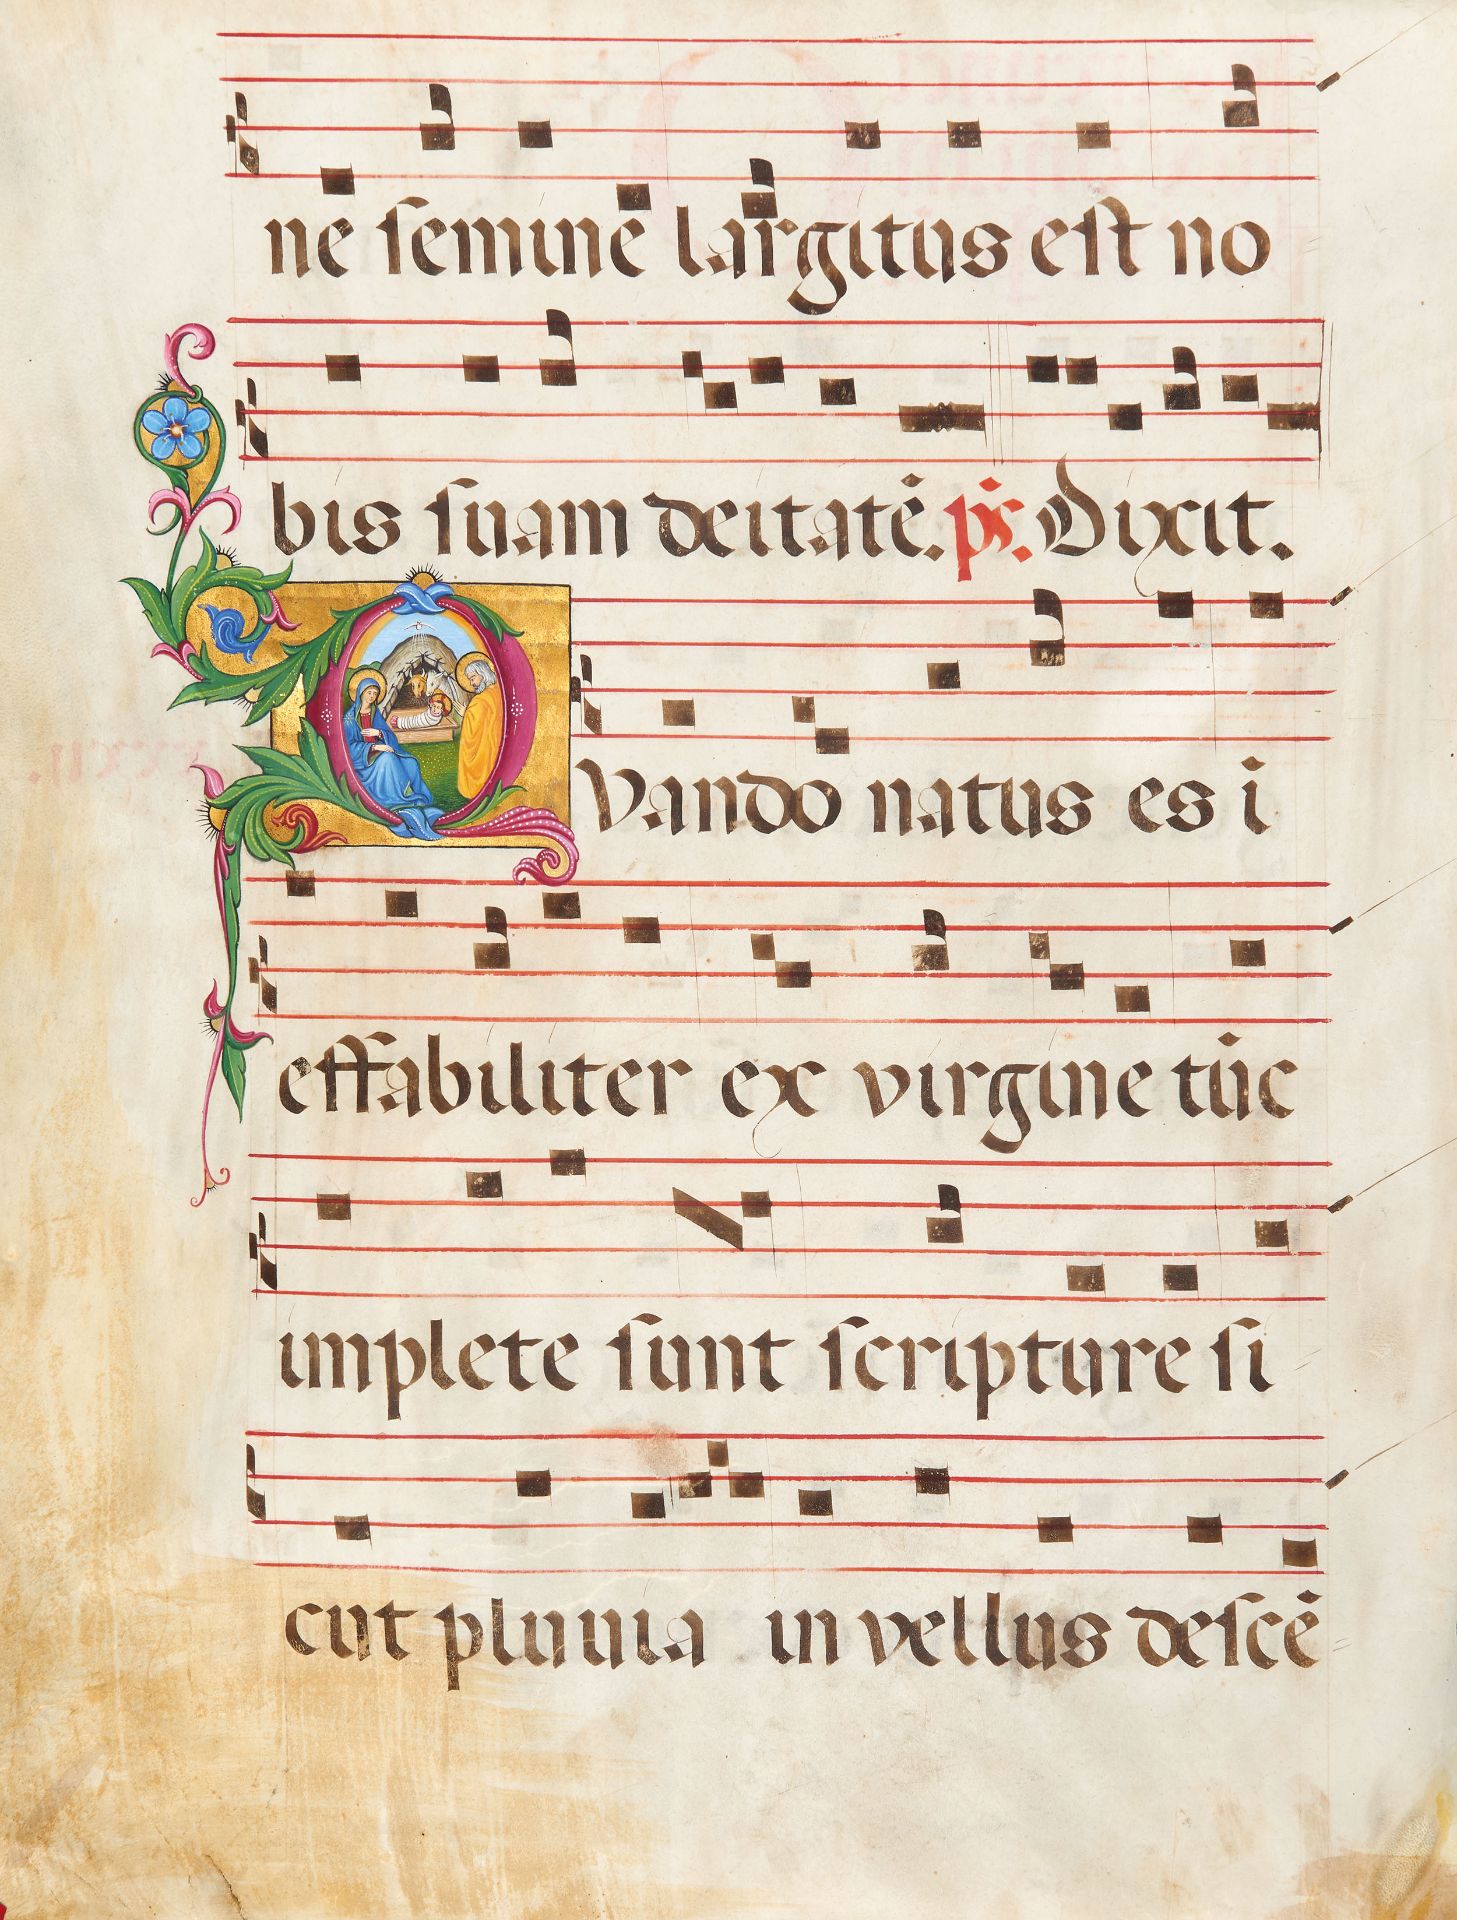 ne semine largitus est no
bis suam deitatē. ps. Dixit.
Quando natus es i
effabiliter ex virgine tūc
implete sunt scripture si
cut pluuia in vellus descē